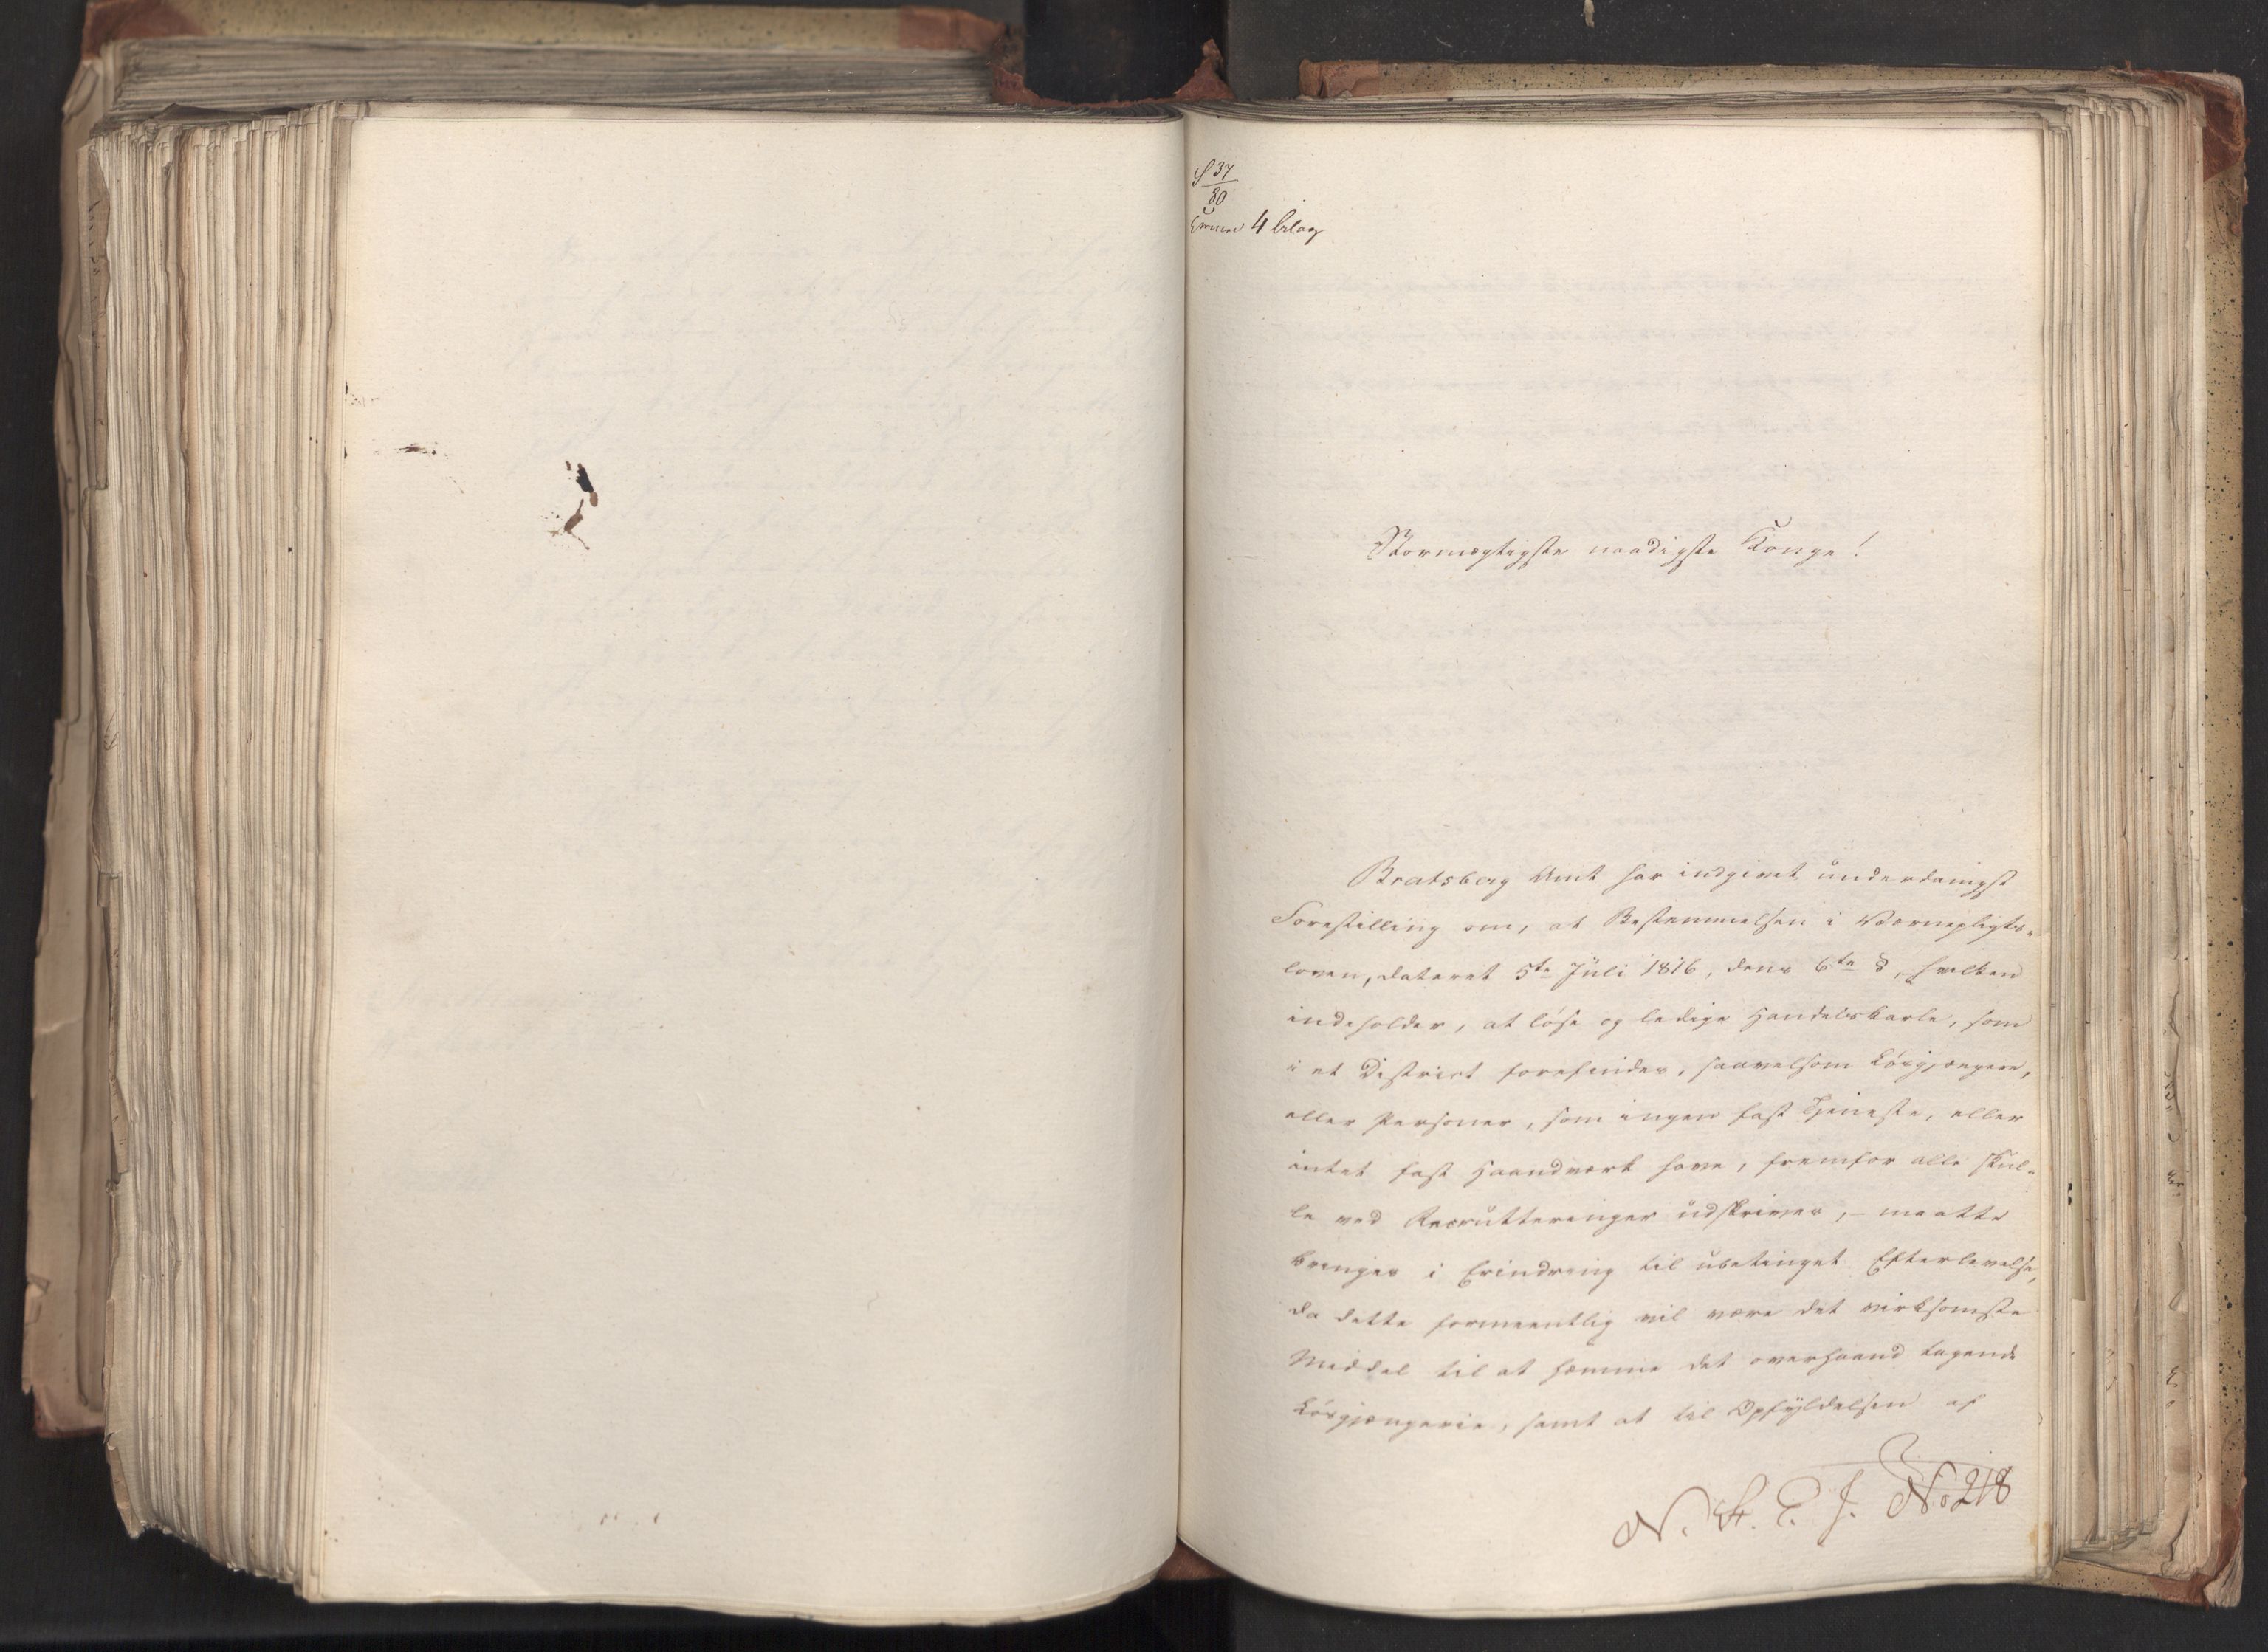 S 37
30
4 bilag
Stormægtigste naadigste Konge!
Bratsberg Amt har indgivet underdanigst
Forestilling om, at Bestemmelsen i Værnepligts-
loven, dateret 5te Juli 1816, dens 6te §, hvilken
indeholder, at løse og ledige Handelskarle, som
i et District forefindes, saavelsom Løsgjængere,
eller Personer, som ingen fast Tjeneste, eller
intet fast Haandværk have, fremfor alle skul-
le ved Recrutteringer udskrives, - maatte
bringes i Erindring til ubetinget Efterlevelse,
da dette formeentlig vil være det virksomste
Middel til at hæmme det overhaand tagende
Løsgjængerie, samt at til Opfyldelsen af
N. St. E. J. No 218